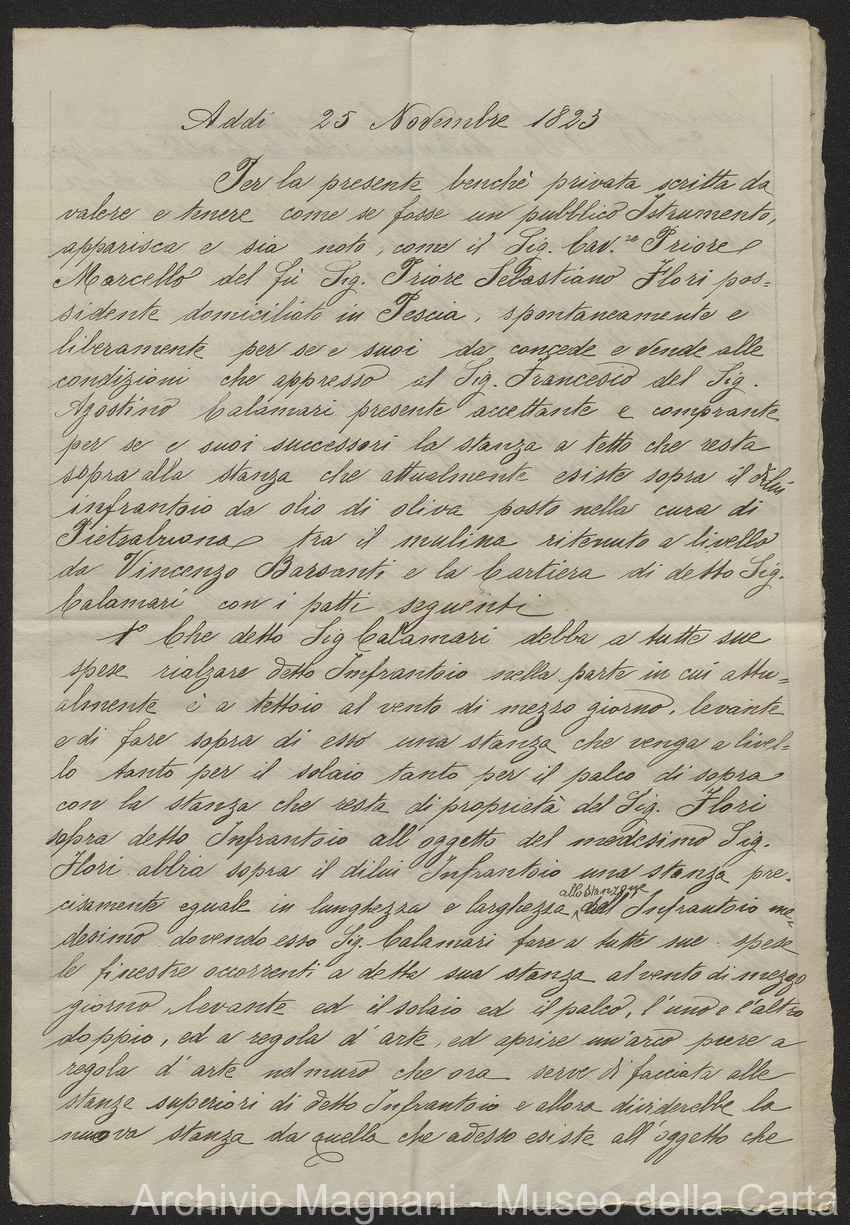 Addi 25 Novembre 1823
Per la presente benchè privata scritta da
valere e tenere come se fosse un pubblico Istrumento,
apparisca e sia noto, come il Sig. Cav.re Priore
Marcello del fù Sig. Priore Sebastiano Flori pos=
sidente domiciliato in Pescia, spontaneamente e
liberamente per se e suoi da concede e vende alle
condizioni che appresso al Sig. Francesco del Sig.
Agostino Calamari presente accettante e comprante
per se e suoi successori la stanza a tetto che resta
sopra alla stanza che attualmente esiste sopra il di lui
infrantoio da olio di oliva posto nella cura di
Pietrabuona tra il mulino ritenuto a livello
da Vincenzo Barsanti e la Cartiera di detto Sig.
Calamari con i patti seguenti
1o Che detto Sig Calamari debba a tutte sue
spese rialzare detto Infrantoio nella parte in cui attu=
almente è a tettoio al vento di mezzo giorno, levante
e di fare sopra di esso una stanza che venga a livel=
lo tanto per il solaio tanto per il palco di sopra
con la stanza che resta di proprietà del Sig. Flori
sopra detto Infrantoio all'oggetto del medesimo Sig.
Flori abbia sopra il dilui Infrantoio una stanza pre=
cisamente eguale in lunghezza e larghezza allo stanzone del Infrantoio me=
desimo dovendo esso Sig. Calamari fare a tutte sue spese
le finestre occorrenti a detta sua stanza al vento di mezzo
giorno, levante ed il solaio ed il palco, l'uno e l'altro
doppio, ed a regola d'arte, ed aprire un'arco pure a
regola d'arte nel muro che ora serve di facciata alle
stanze superiori di detto Infrantoio e allora dividerebbe la
nuova stanza da quella che adesso esiste all'oggetto che
Archivio Magnani - Museo della Carta